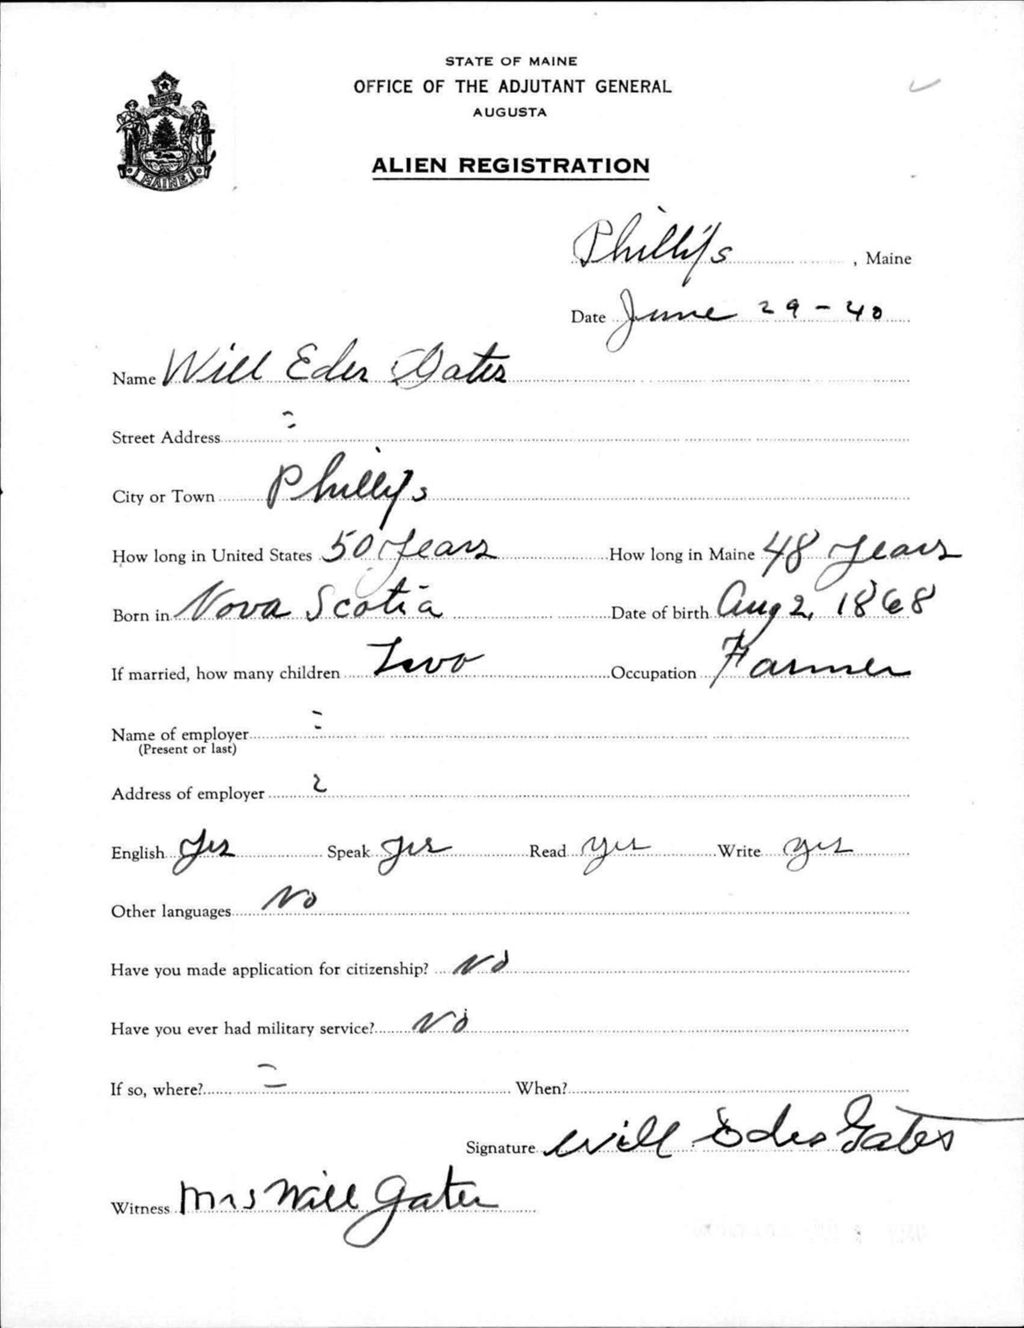 STATE OF MAINE
OFFICE OF THE ADJUTANT GENERAL
AUGUSTA
MAINE
ALIEN REGISTRATION
Phillips, Maine
Date June 29-40
Name Will Eder Gates
Street Address -
City or Town Phillips
How long in United States 50 Years How long in Maine 48 years
Born in Nova Scotia Date of birth Aug 2, 1868
If married, how many children Two Occupation Farmer
Name of employer -
(Present or last)
Address of employer
English Yes Speak Yes Read Yes Write Yes
Other languages No
Have you made application for citizenship? No
Have you ever had military service? No
If so, where? - When?
Signature Will Gates
Witness Mrs Will Gates